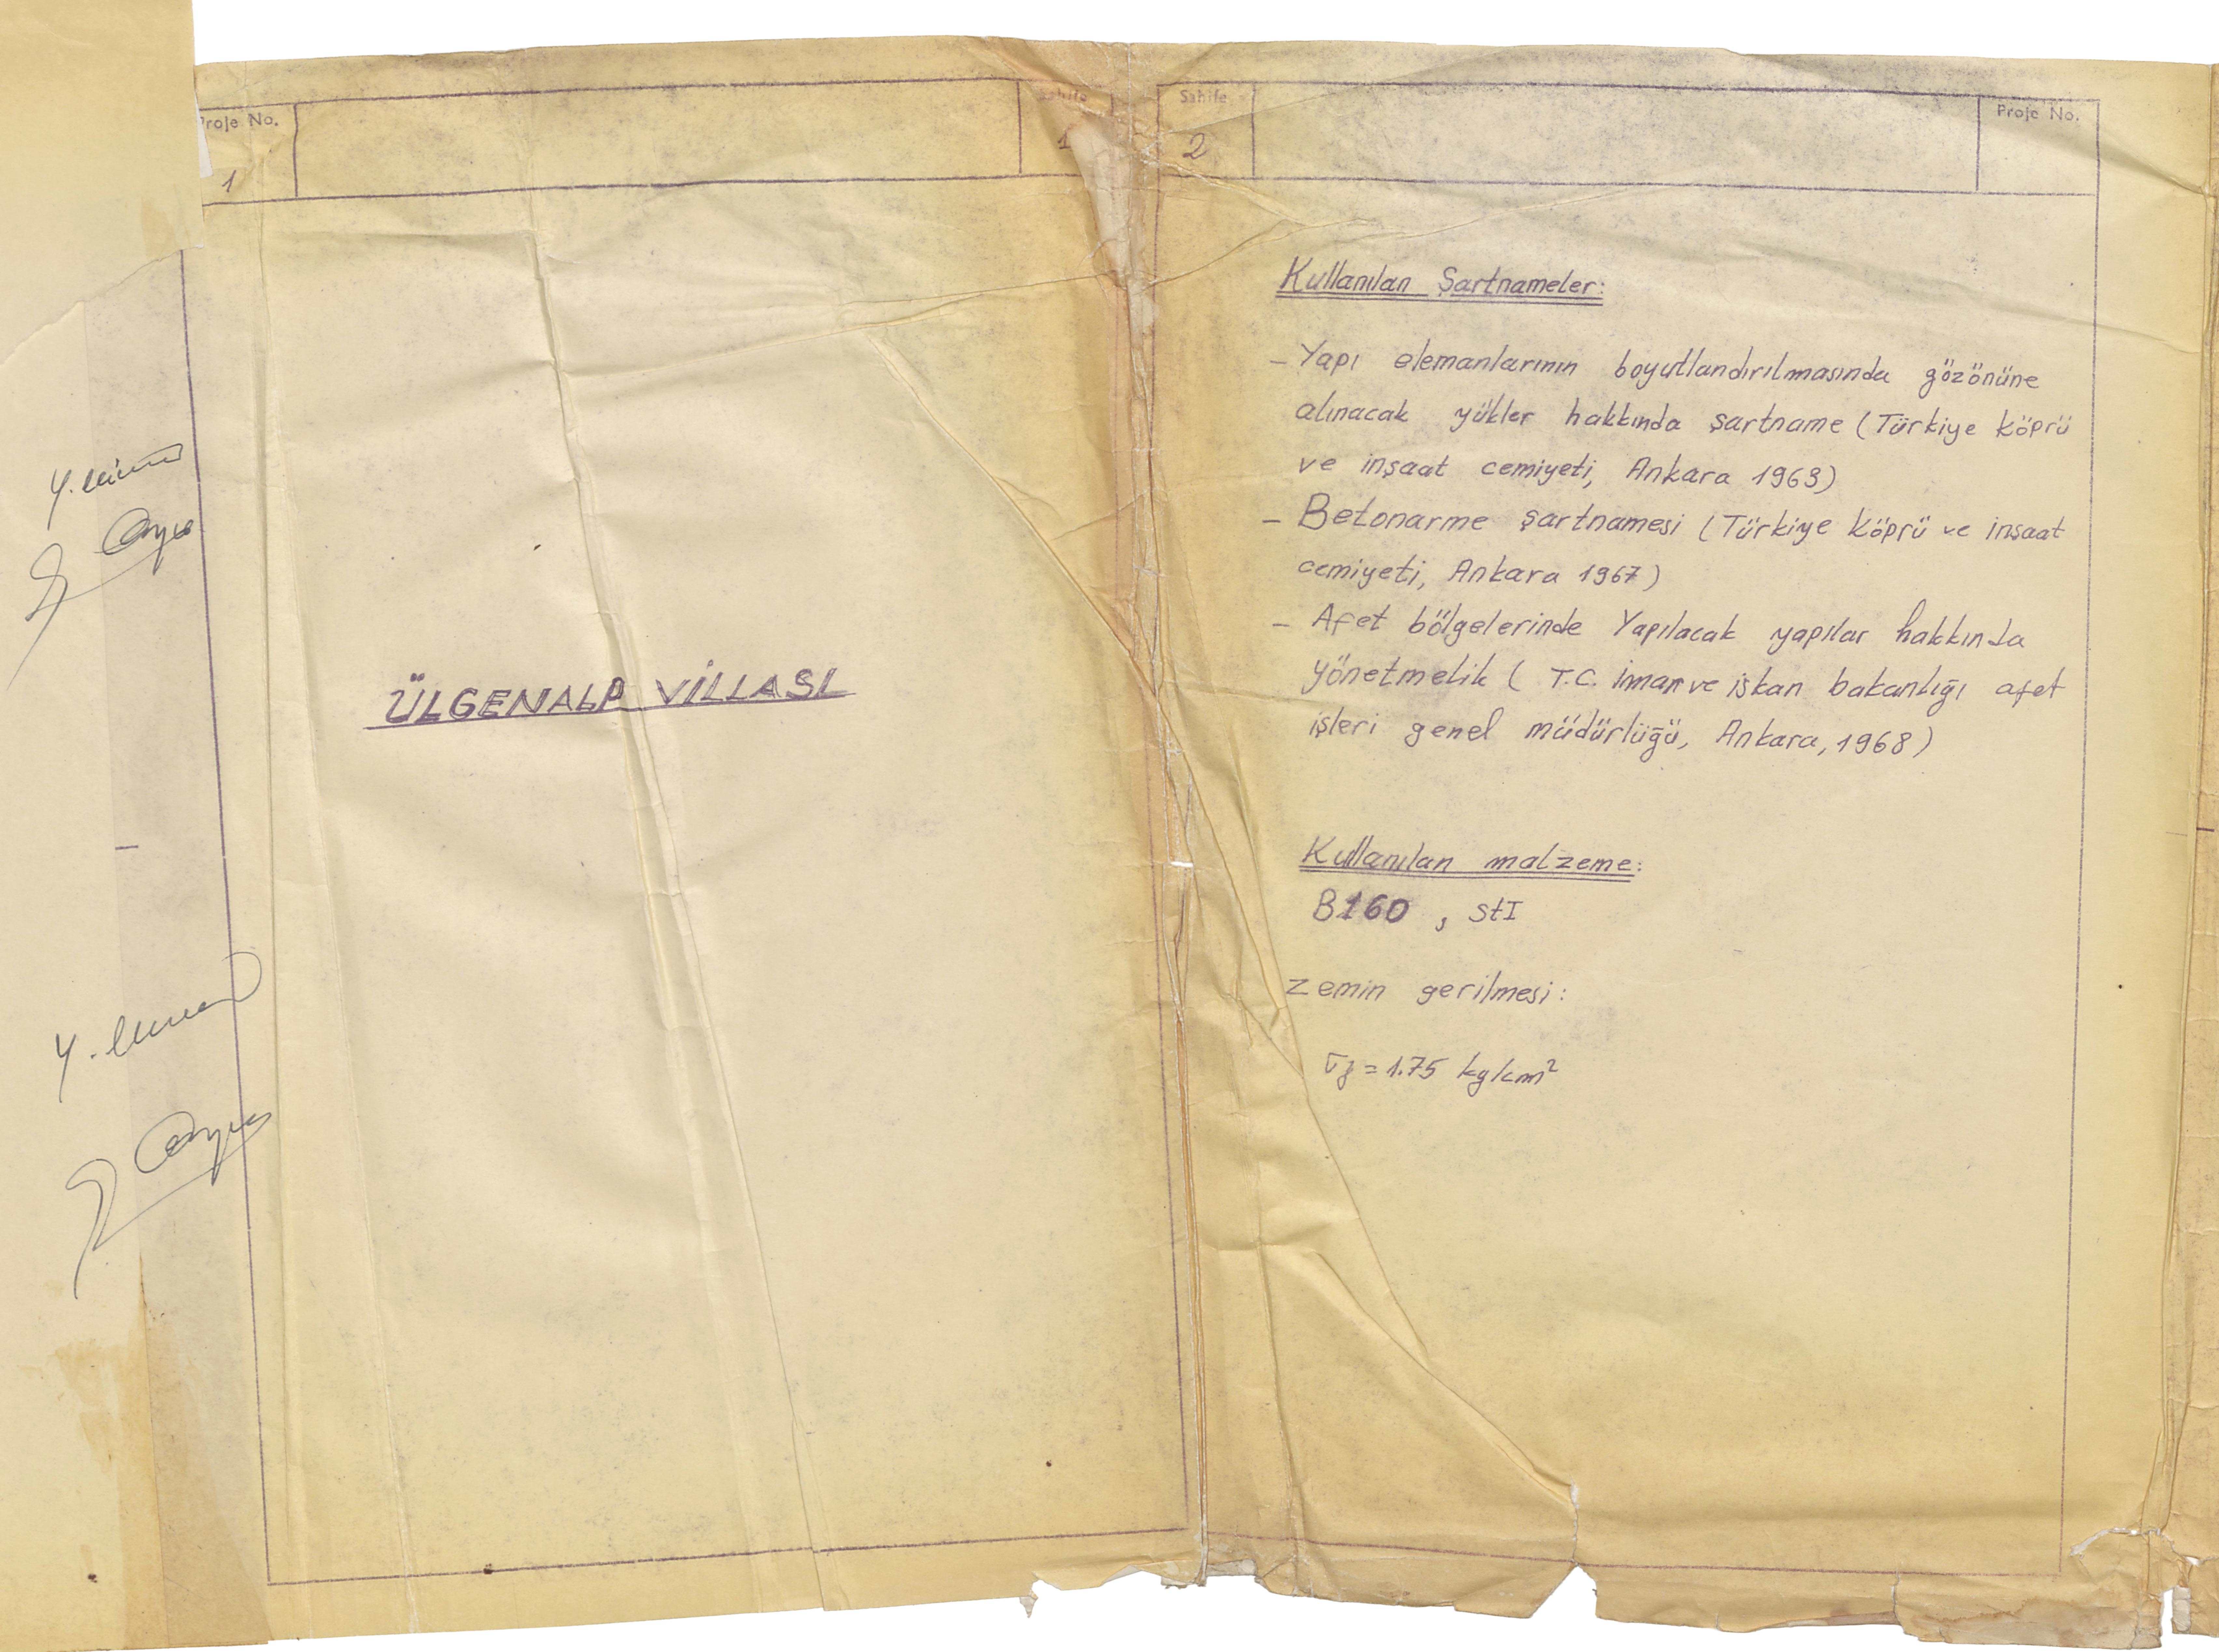 Proje No.
1
Sahife
1
ÜLGENALP VİLLASI
Sahife
2
Proje No.
Kullanılan Şartnameler:
- Yapı elemanlarının boyutlandırılmasında gözönüne
alınacak yükler hakkında şartname (Türkiye Köprü
ve inşaat cemiyeti, Ankara 1963)
- Betonarme şartnamesi (Türkiye Köprü ve inşaat
cemiyeti, Ankara 1967)
- Afet bölgelerinde Yapılacak yapılar hakkında
yönetmelik ( T.C. İmar ve iskan bakanlığı afet
işleri genel müdürlüğü, Ankara, 1968)
Kullanılan malzeme:
B160 , StI
Zemin gerilmesi:
= 1.75 kg/cm²